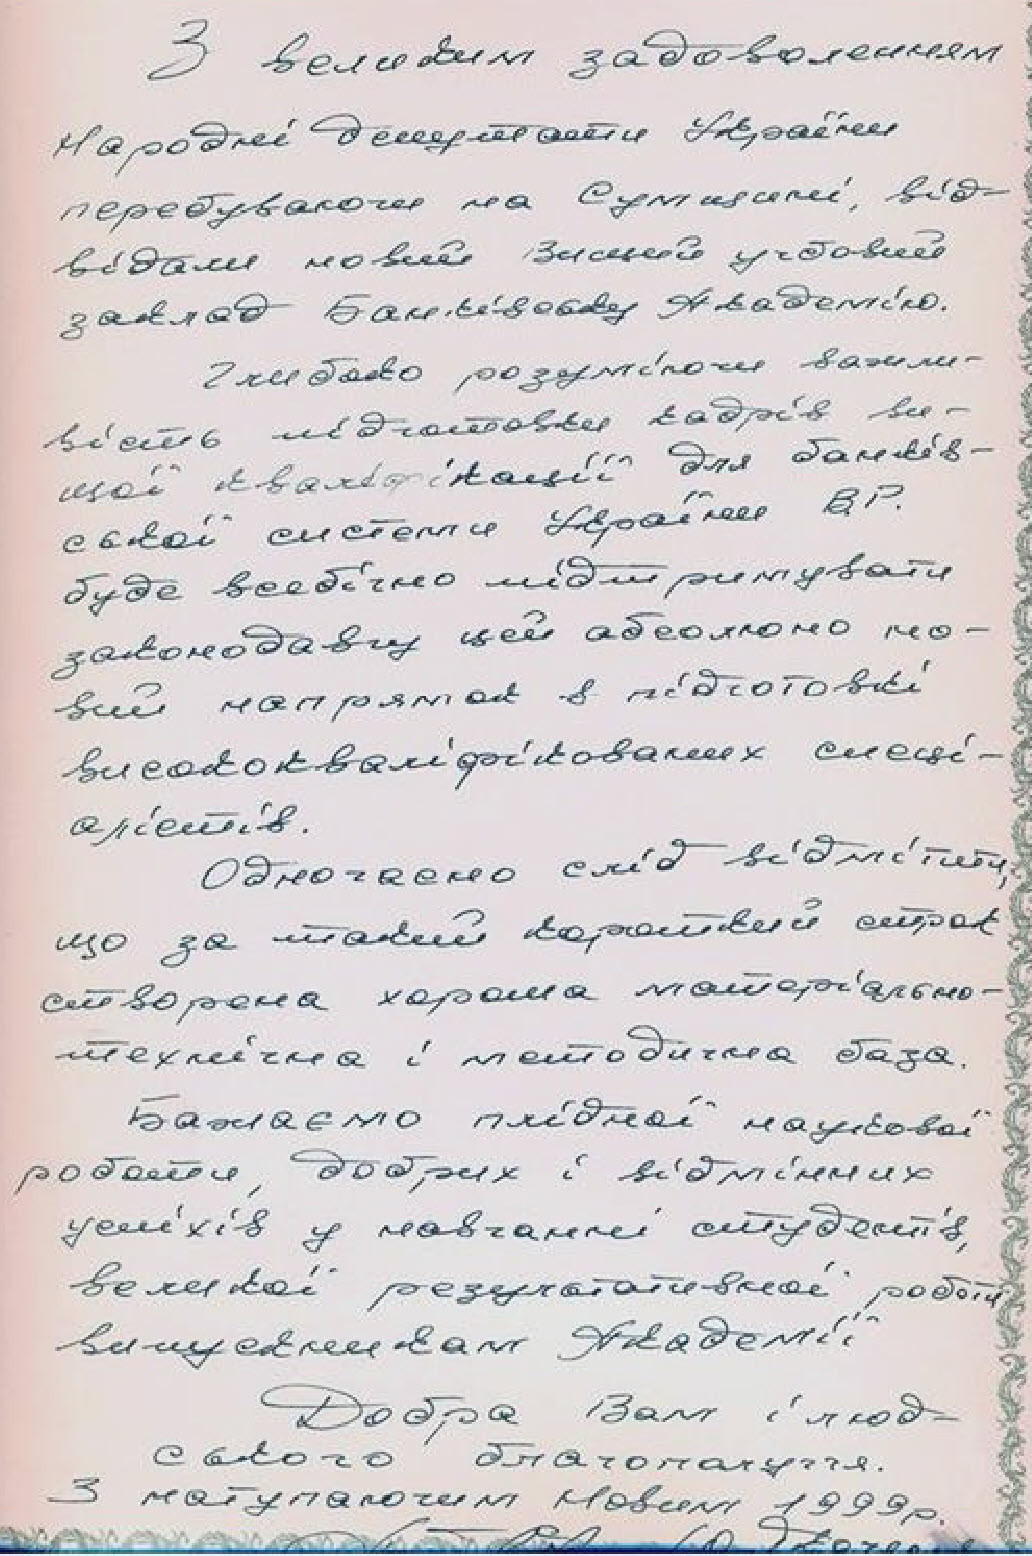 З великим задоволенням
Народні депутати України
перебуваючи на Сумщині, від-
відали новий Вищий учбовий
заклад Банківську Академію.
Глибоко розуміючи важли-
вість підготовки кадрів ви-
щої кваліфікації для банків-
ської системи України ВР.
буде всебічно підтримувати
законодавчу цей абсолюно но-
вий напрямок в підготовкі
висококваліфікованих спеці-
алістів.
Одночасно слід відмітити,
що за такий короткий строк
створена хороша матеріально-
технічна і методична база.
Бажаємо плідної наукової
роботи, добрих і відмінних
успіхів у навчанні студентів,
великої результативної роботи
випускникам Академії
Добра Вам і люд-
ського благополуччя.
З наступаючим Новим 1999р.